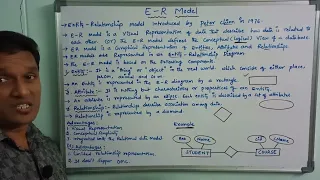 E-R Model
Entity - Relationship model introduced by Peter Chen in 1976.
E-R model is a Visual Representation of data that describe how data is related to
each other (or) The E-R model defines the Conceptual (logical) View of a database.
ER model is a Graphical Representation of Entities, Attribute and Relationships.
ER model is based on the following Components.
Entity: "thing" or "object" in the real world, which consists of either place,
person, animal
An Entity is represented in the E-R diagram by a rectangle.
Attribute: It is nothing but characteristics or properties of an Entity.
An attribute is represented by an and entity is described by a set of attributes
Relationship: Relationship describes association among data
Relationship is represented by a diamond
Advantages:
Example
1 Visual Representation
2 Conceptual Simplicity
3 integrated with the Relational data model
Name
STUDENT
COURSE
Disadvantages:
1 Limited Relationship representation
2 It don't Support